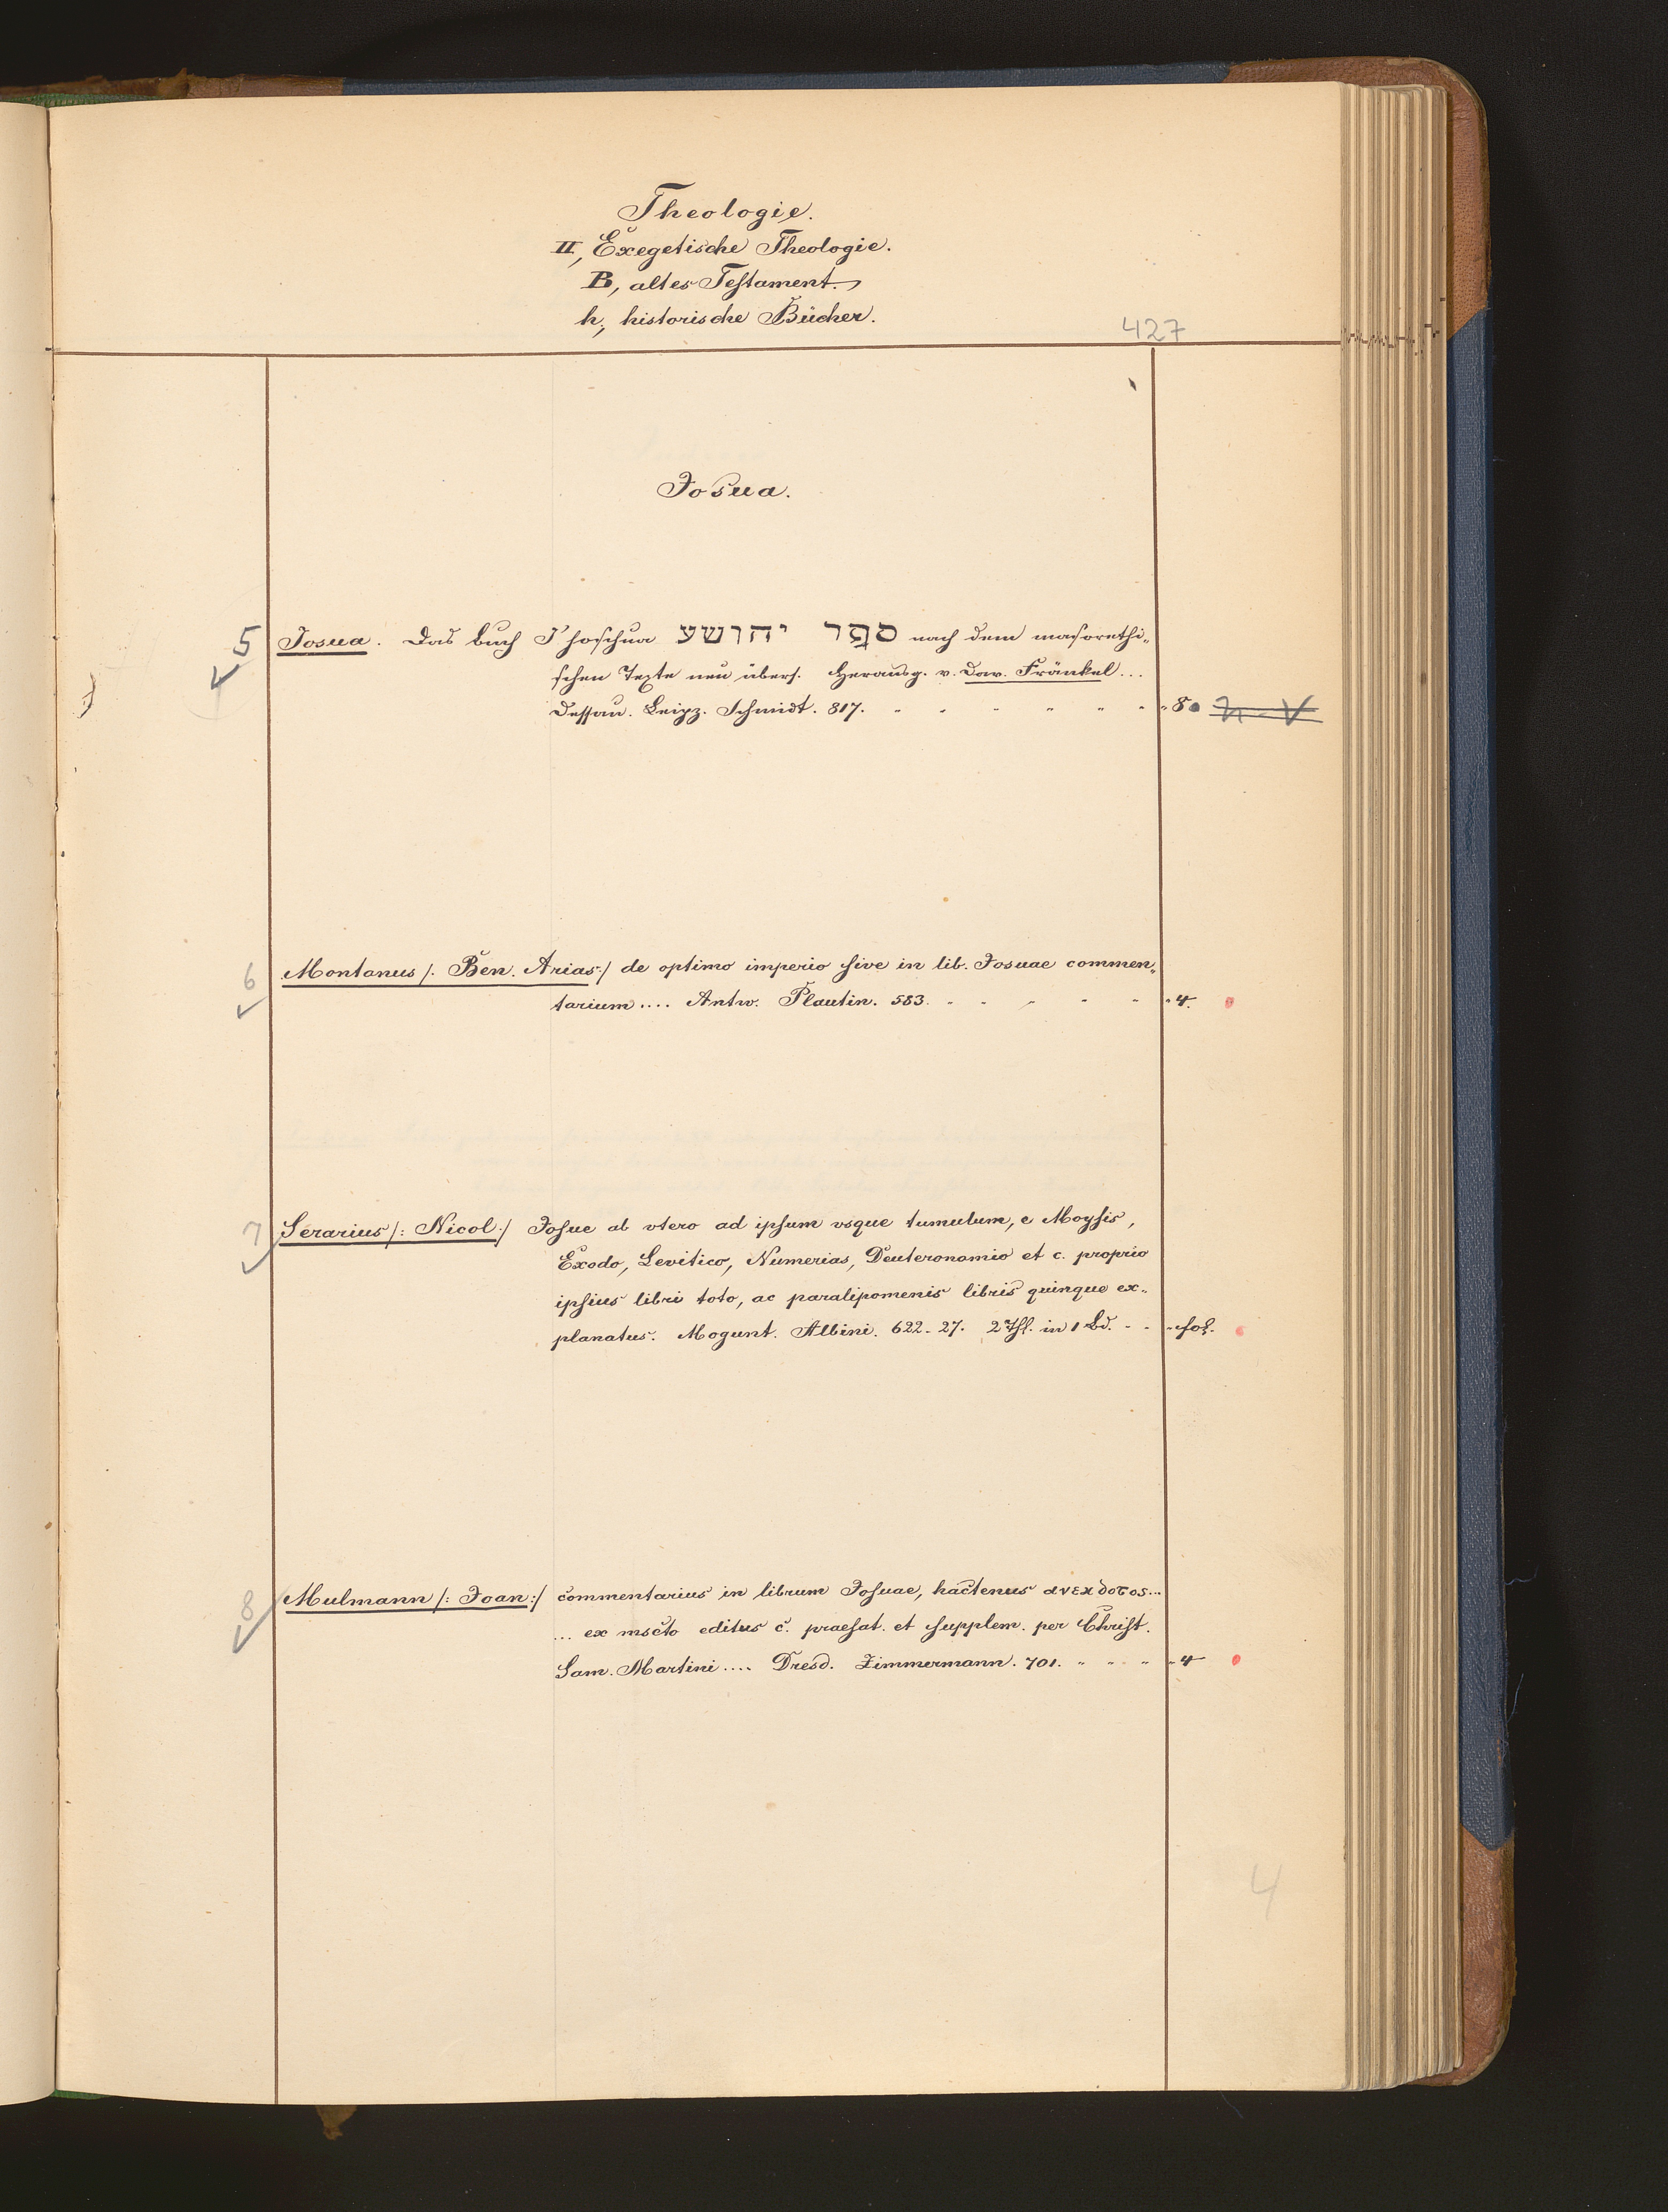 Theologie.
II, Exegetische Theologie.
B, altes Testament.
h, historische Bücher.
427
Josua.
5 Josua. Das Buch J'hoschua ספר יהושע nach dem masorethi-
schen Texte neu übers. Herausg. v. Dav. Fränkel...
Dessau. Leipz. Schmidt. 817. 8
6 Montanus /: Ben. Arias :/ de optimo imperio sive in lib. Josuae commen-
tarium .... Antw. Plautin. 583. 4.
7 Serarius /: Nicol :/ Josue ab vtero ad ipsum vsque tumulum, e Moysis,
Exodo, Levitico, Numerias, Deuteronomio et c. proprio
ipsius libri toto, ac paralipomenis libris quinque ex-
planatus. Mogunt. Albini. 622-27. 2 Thl. in 1 Bd. fol.
8 Mulmann /: Joan :/ commentarius in librum Josuae, hactenus ανεκδοτος...
... ex mscto editus c. praefat. et supplem. per Christ.
Sam. Martini .... Dresd. Zimmermann. 701. 4
4